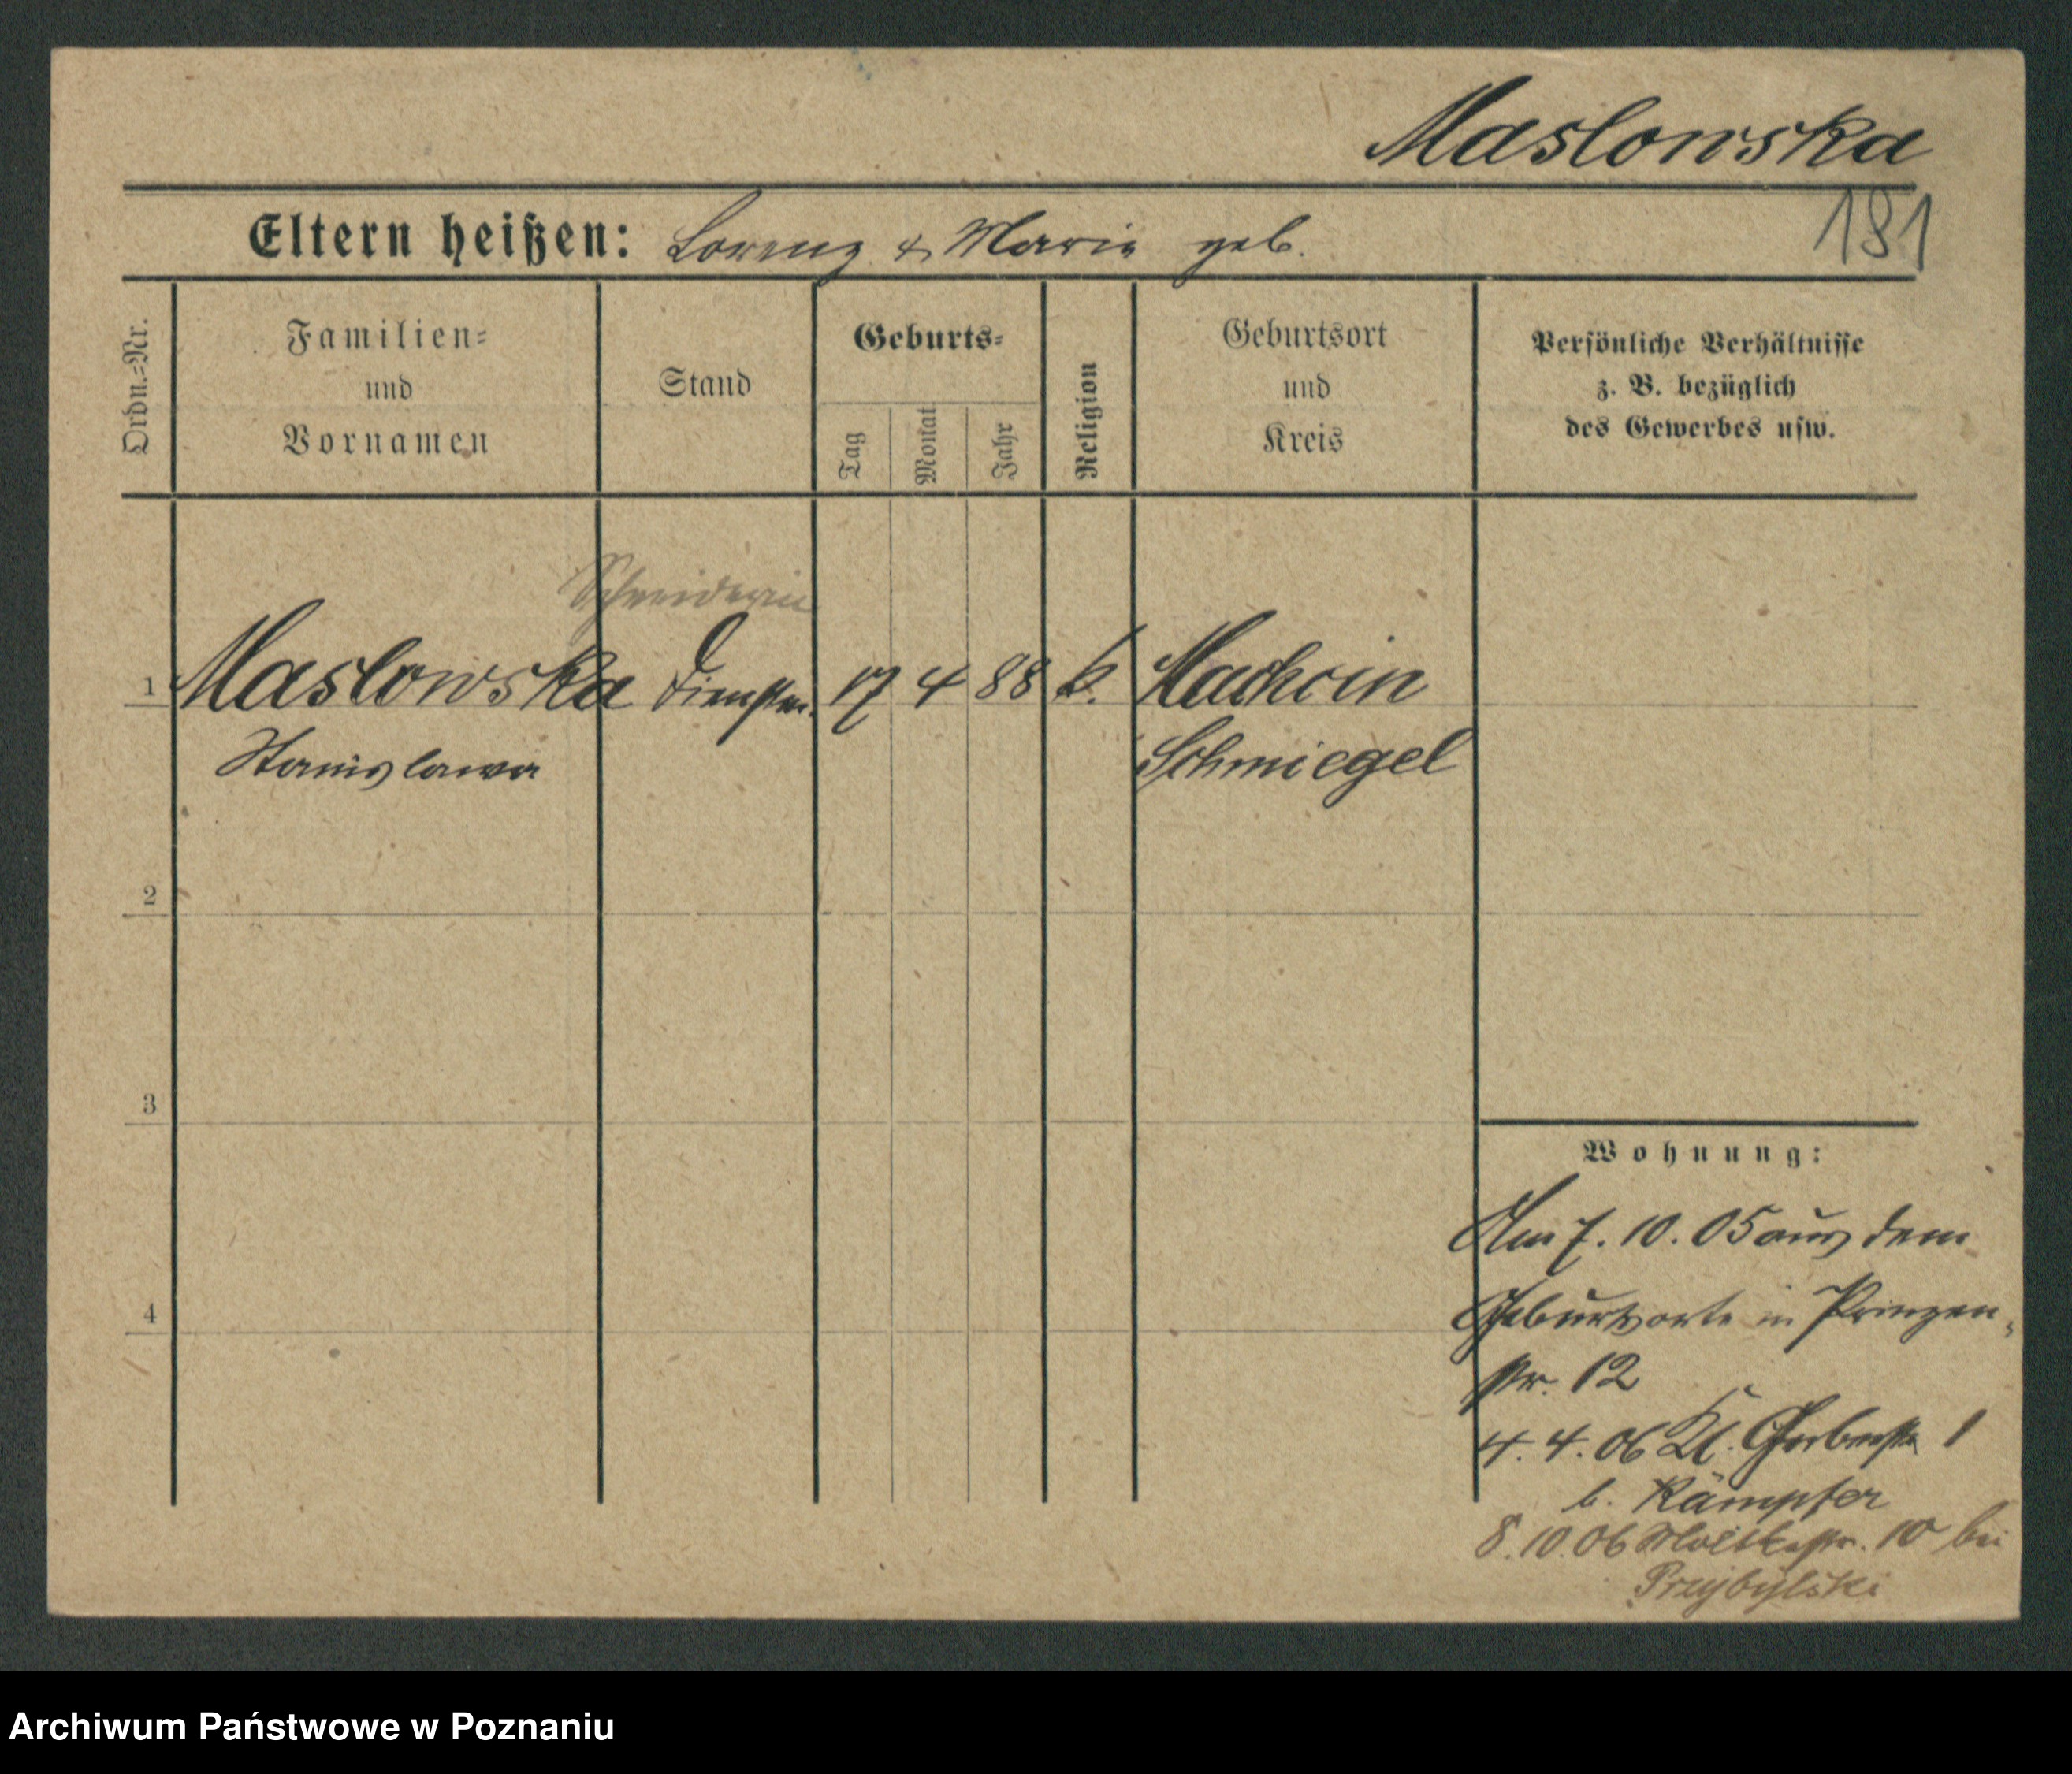 Maslowska
181
Eltern heißen: Lorenz & Marie geb.
Ordn.-Nr.
Familien-
und
Vornamen
Stand
Geburts-
Tag
Monat
Jahr
Religion
Geburtsort
und
Kreis
Persönliche Verhältnisse
z. B. bezüglich
des Gewerbes usw.
Schneiderin
1 Maslowska Dienstm. 17 4 88 k. Machcin
Stanislawa Schmiegel
2
3
4
Wohnung:
Am 7. 10. 05 aus dem
Geburtsorte in Prinzen-
str. 12
4. 4. 06 Kl. Gerberstr. 1
b. Kämpfer
8. 10. 06 Moltkestr. 10 bei
Przybylski
Archiwum Państwowe w Poznaniu